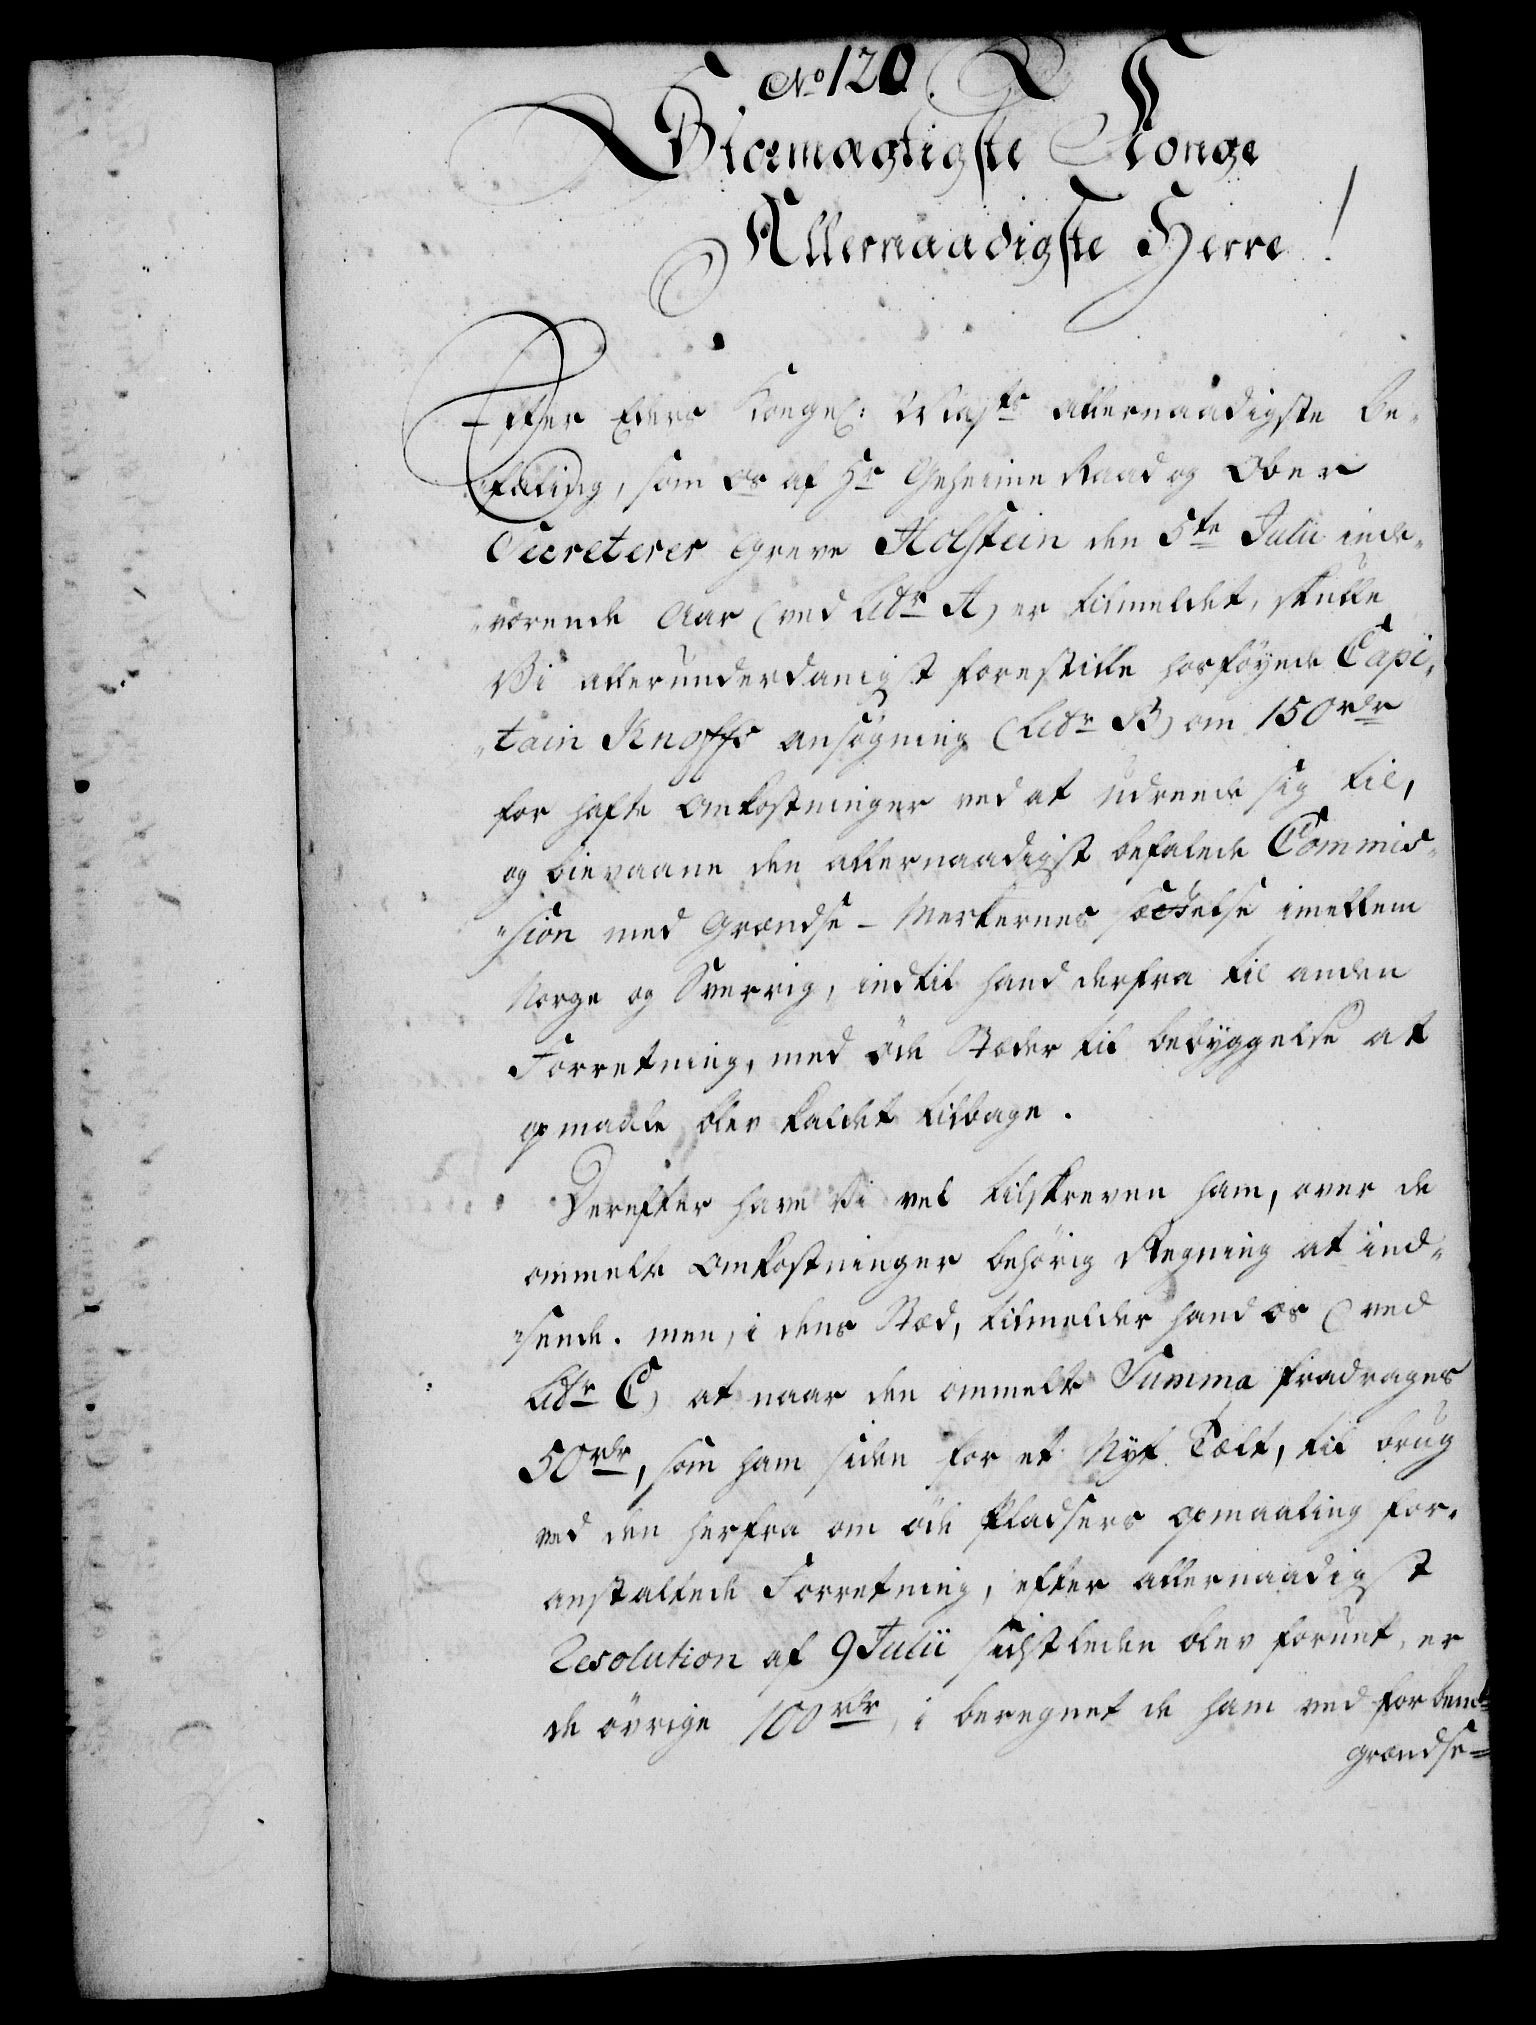 No 120.
Stormægtigste Konge
Allernaadigste Herre!
Efter Eders Kongel: Majts allernaadigste Be-
faling, som os af Hr Geheime Raad og Ober
Secreterer Greve Holstein den 5te Julii inde-
"værende Aar (ved Litr A) er tilmeldet, skulle
Vi allerunderdanigst forestille hosføyede Capi-
"tain Knoffs ansøgning (Litr B) om 150 rdr
for hafte Omkostninger ved at udreede sig til,
og bievaane den allernaadigst befalede Commis-
"sion med Grændse-Merkernes sættelse imellem
Norge og Sverrig, indtil hand derfra til anden
Forretning, med øde Stæder til bebyggelse at
opmaale blev kaldet tilbage.
Derefter have Vi vel tilskreven ham, over de
ommelte Omkostninger behørig Regning at ind-
"sende. men, i dens Stæd, tilmelder hand os (ved
Litr C) at naar den ommelte Summa fradrages
50 rdr, som ham siden for et Nyt Telt, til brug
ved den herfra om øde Pladsers opmaaling for-
anstaltede Forretning, efter allernaadigst
Resolution af 9 Julii sidstleden blev forundt, er
de øvrige 100 rdr, i beregnet de ham ved forbemte
grændse-